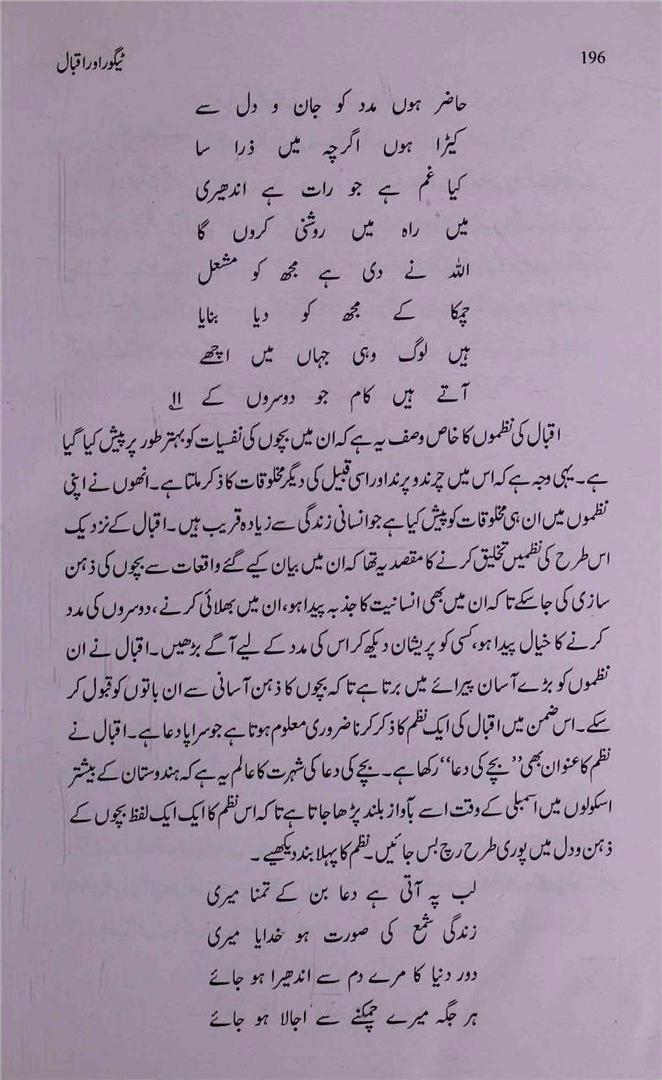 196
ٹیگور اور اقبال
حاضر ہوں مدد کو جان و دل سے
کیڑا ہوں اگرچہ میں ذرا سا
کیا غم ہے جو رات ہے اندھیری
میں راہ میں روشنی کروں گا
اللہ نے دی ہے مجھ کو مشعل
چمکا کے مجھ کو دیا بنایا
ہیں لوگ وہی جہاں میں اچھے
آتے ہیں کام جو دوسروں کے 11
اقبال کی نظموں کا خاص وصف یہ ہے کہ ان میں بچوں کی نفسیات کو بہتر طور پر پیش کیا گیا
ہے۔ یہی وجہ ہے کہ اس میں چرند و پرند اور اسی قبیل کی دیگر مخلوقات کا ذکر ملتا ہے۔ انھوں نے اپنی
نظموں میں ان ہی مخلوقات کو پیش کیا ہے جو انسانی زندگی سے زیادہ قریب ہیں۔ اقبال کے نزدیک
اس طرح کی نظمیں تخلیق کرنے کا مقصد یہ تھا کہ ان میں بیان کیے گئے واقعات سے بچوں کی ذہن
سازی کی جا سکے تاکہ ان میں بھی انسانیت کا جذبہ پیدا ہو، ان میں بھلائی کرنے، دوسروں کی مدد
کرنے کا خیال پیدا ہو، کسی کو پریشان دیکھ کر اس کی مدد کے لیے آگے بڑھیں۔ اقبال نے ان
نظموں کو بڑے آسان پیرائے میں برتا ہے تاکہ بچوں کا ذہن آسانی سے ان باتوں کو قبول کر
سکے۔ اس ضمن میں اقبال کی ایک نظم کا ذکر کرنا ضروری معلوم ہوتا ہے جو سراپا دعا ہے۔ اقبال نے
نظم کا عنوان بھی ”بچے کی دعا“ رکھا ہے۔ بچے کی دعا کی شہرت کا عالم یہ ہے کہ ہندوستان کے بیشتر
اسکولوں میں اسمبلی کے وقت اسے بآواز بلند پڑھا جاتا ہے تاکہ اس نظم کا ایک ایک لفظ بچوں کے
ذہن و دل میں پوری طرح رچ بس جائیں۔ نظم کا پہلا بند دیکھیے۔
لب پہ آتی ہے دعا بن کے تمنا میری
زندگی شمع کی صورت ہو خدایا میری
دور دنیا کا مرے دم سے اندھیرا ہو جائے
ہر جگہ میرے چمکنے سے اجالا ہو جائے